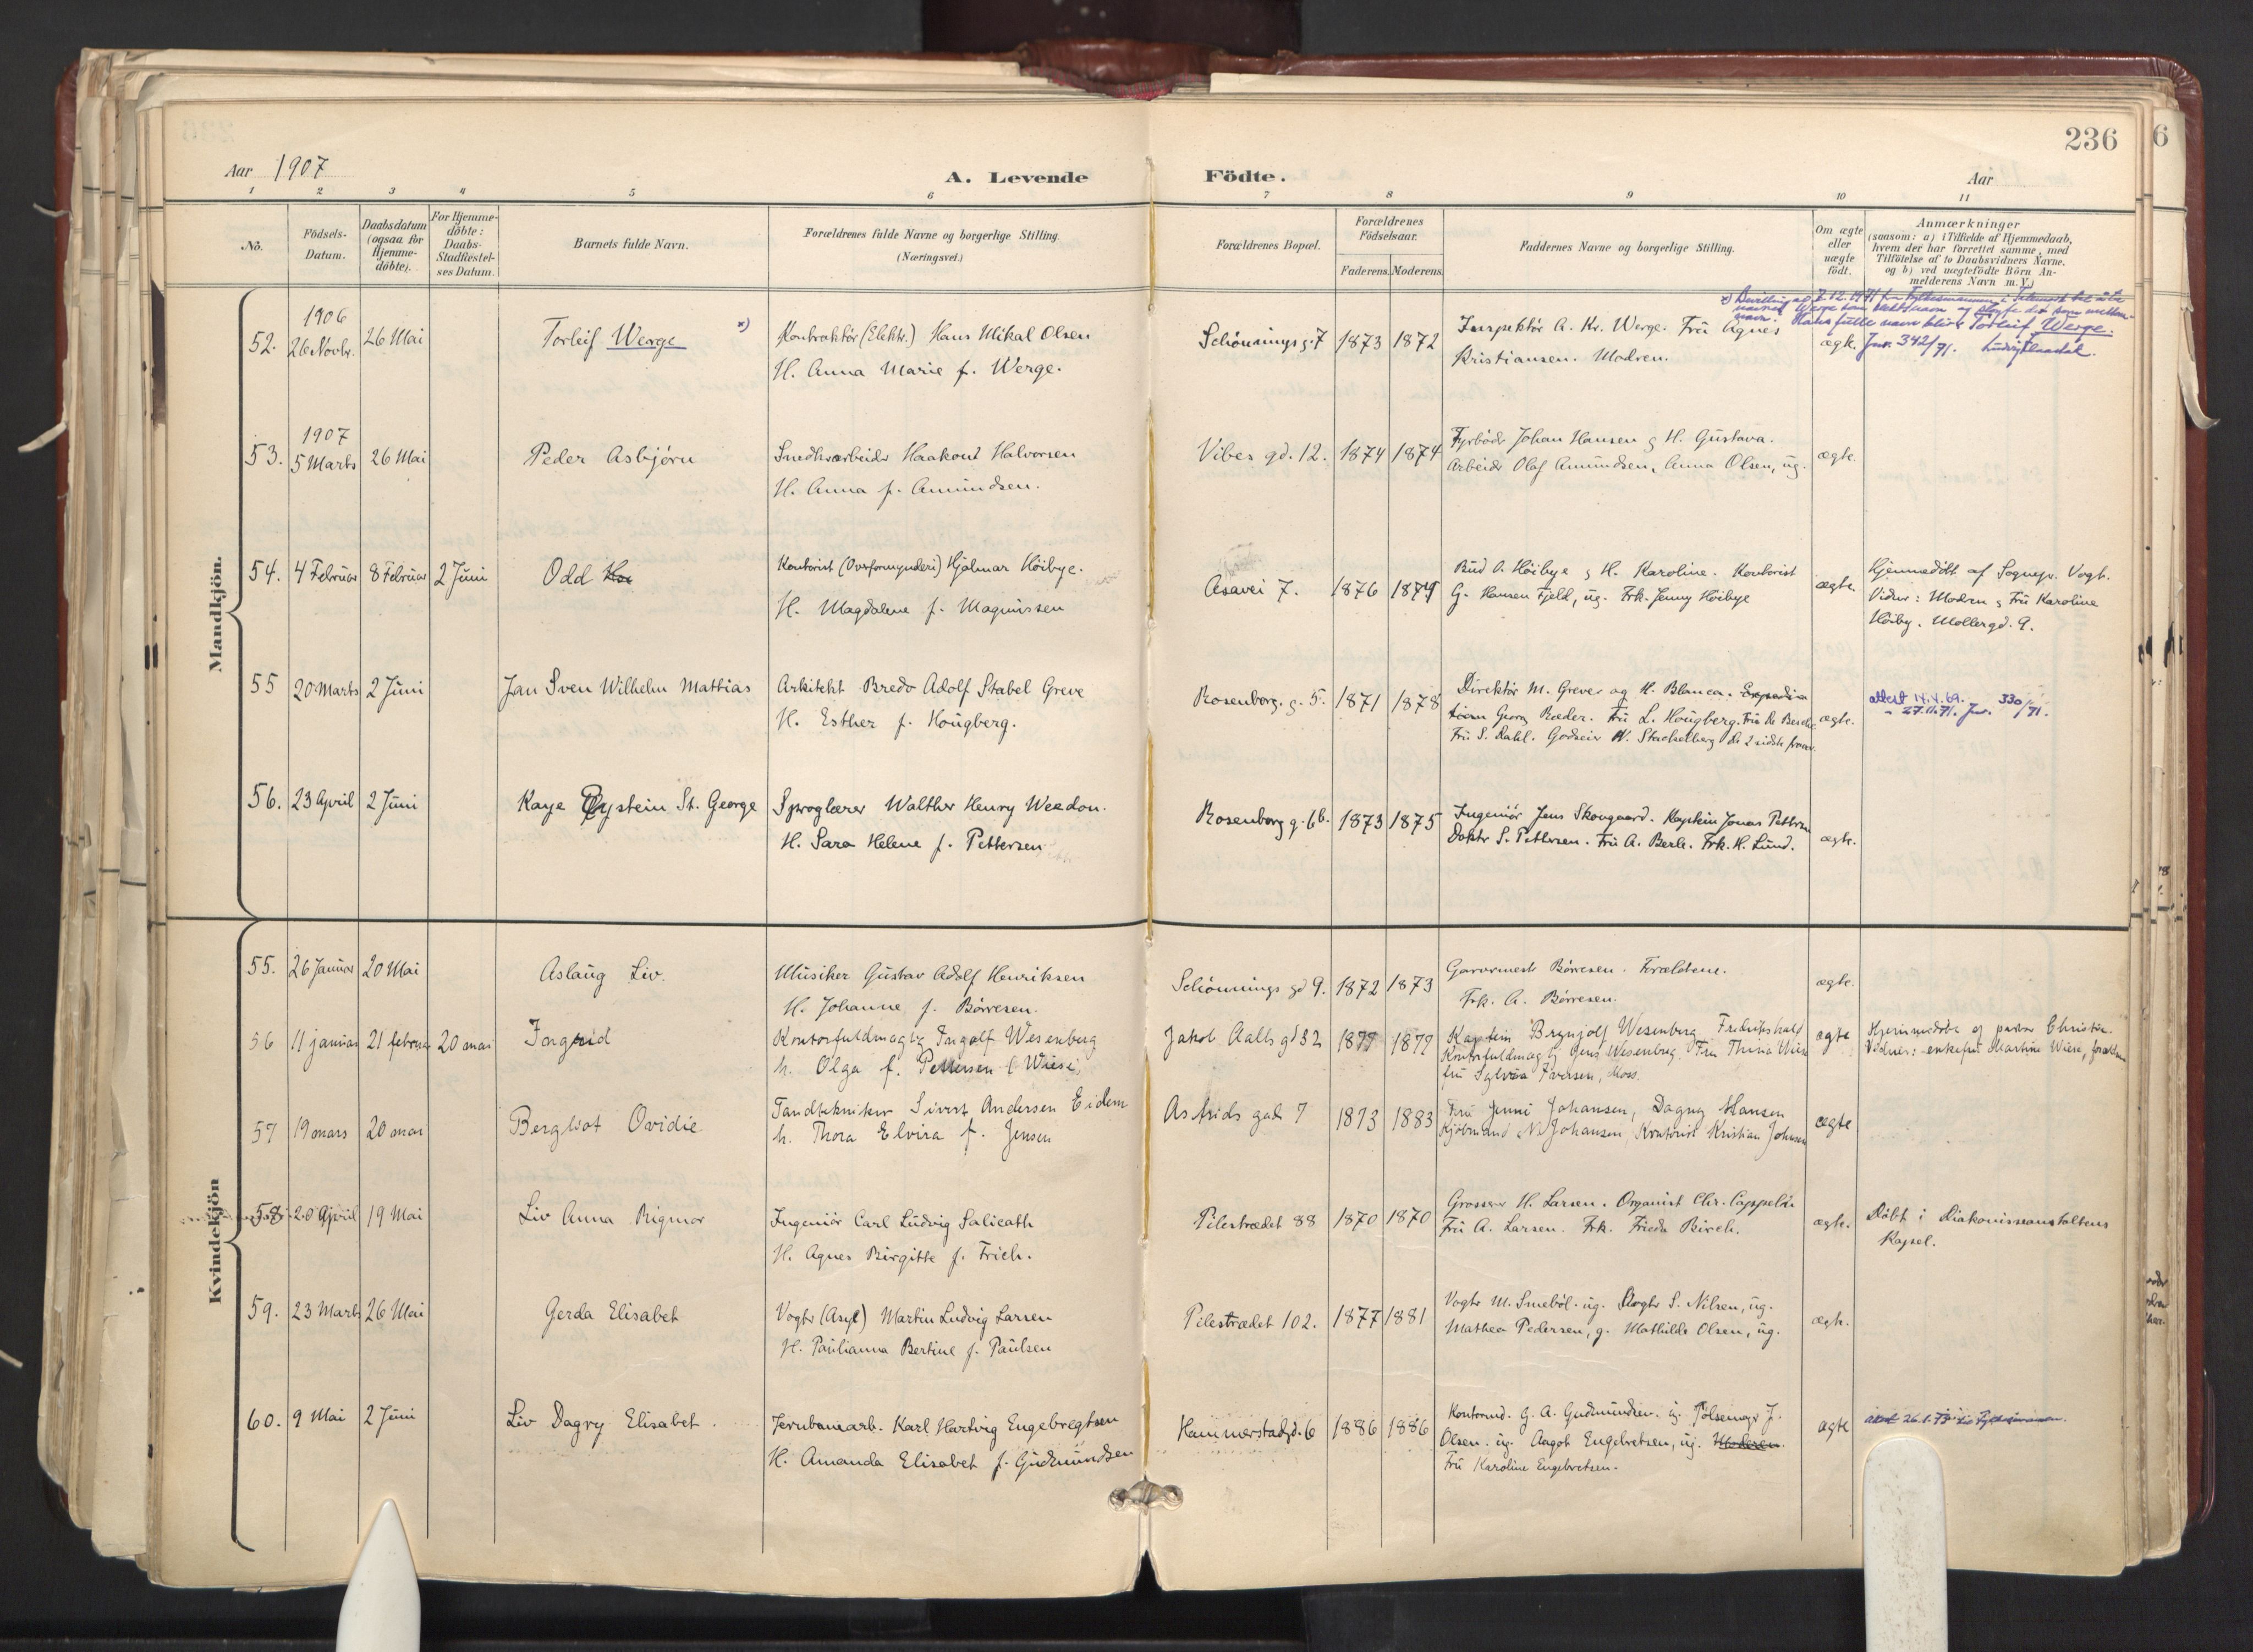 236
Aar 1907
A. Levende Födte.
Aar
1 2 3 4 5 6 7 8 9 10 11
Nö.
Födsels-
Datum.
Daabsdatum
(ogsaa for
Hjemme-
döbte).
For Hjemme-
döbte:
Daabs-
Stadfæstel-
ses Datum.
Barnets fulde Navn.
Forældrenes fulde Navne og borgerlige Stilling.
(Næringsvei.)
Forældrenes Bopæl.
Forældrenes
Födselsaar.
Faderens. Moderens.
Faddernes Navne og borgerlige Stilling.
Om ægte
eller
uægte
födt.
Anmærkninger
(saasom: a) i Tilfælde af Hjemmedaab,
hvem der har forrettet samme, med
Tilföielse af to Daabsvidners Navne.
og b) ved uægtefödte Börn An-
melderens Navn m. V.)
Mandkjön.
52.
1906
26 Novbr.
26 Mai
Torleif Werge x)
Kontraktör (Elektr.) Hans Mikal Olsen
H. Anna Marie f. Werge.
Schönnings g. 7
1873
1872
Inspektör A. Kr. Werge. Frü Agnes
Kristiansen. Modren.
ægte.
x) Bevilling af 7.12.1971 fra Fylkesmannen i Telemark
Werge som
navn. Hans fulle navn blir: Torleif Werge.
Jnr. 342/71.
53.
1907
5 Marts
26 Mai
Peder Asbjörn
Snedkerarbeider Haakont Halvorsen
H. Anna f. Amündsen.
Vibes gd. 12.
1874
1874
Fyrböder Johan Hansen & H. Güstava.
Arbeider Olaf Amündsen, Anna Olsen, üg.
ægte.
54.
4 Februar
8 Februar
2 Jüni
Odd
Kontorist (Overformynderi) Hjalmar Höibye.
H. Magdalene f. Magnüssen
Asavei 7.
1876
1874
Büd O. Höibye & H. Karoline. Kontorist
G. Hansen Fjeld, üg. Frk. Jenny Höibye
ægte.
Hjemmedöbt af Sognepr. Vogt.
Vidner: Modren & Frü Karoline
Höiby. Mollergd. 9.
55
20 Marts
2 Jüni
Jan Sven Wilhelm Mattias
Arkitekt Bredo Adolf Stabel Greve
H. Esther f. Hougberg.
Rosenborg. g. 5.
1871
1878
Direktör M. Greve og H. Blanca.
Georg Ræder. Frü L. Hougberg.
Frü S. Dahl. Godseier W. Stackelberg de 2 sidste fravær.
ægte.
attest 14.4.69.
" 27.11.71. Jnr. 330/71.
56.
23 April
2 Jüni
Kaye Øystein St. George
Sproglærer Walther Henry Weedon.
H. Sara Helene f. Pettersen
Rosenborg g. 6b.
1873
1875
Ingeniör Jens Skougaard. Kaptein Jonas Pettersen
Doktor S. Pettersen. Frü A. Berle. Frk. H. Lünd.
ægte.
Kvindekjön
55.
26 Januar
20 Mai
Aslaüg Liv.
Musiker Güstav Adolf Henriksen
H. Johanne f. Börresen.
Schönnings gd 9.
1872
1873
Garvermester Börresen. Forældrene.
Frk. A. Börresen.
ægte.
56
11 januar
21 februar
20 mai
Ingrid
Kontorfuldmægtig Ingolf Wesenberg
h. Olga f. Pettersen (Wiese)
Jakob Aalls gd 32
1879
1879
Kaptein Brynjolf Wesenberg, Fredrikshald
Kontorfuldmægtig Jens Wesenberg. Frü Thina Wiese
frü Sylvia Iversen, Moss.
ægte
Hjemmedöbt af pastor Christie.
Vidner: enkefrü Martine Wiese, forældrene
57
19 mars
20 mai
Bergliot Ovidie
Tandtekniker Sivert Andersen Eidem
h. Thora Elvira f. Jensen
Astrids gade 7
1873
1883
Frü Jenni Johansen, Dagny Hansen
Kjöbmand N. Johansen, Kontorist Kristian Johnsen
ægte
58.
20 April
19 Mai
Liv Anna Rigmor
Ingeniör Carl Lüdvig Salicath
H. Agnes Birgitte f. Frich.
Pilestrædet 88
1870
1870
Grosserer H. Larsen. Organist Chr. Cappelen
Frü A. Larsen. Frk. Frieda Birch.
ægte.
Döbt i Diakonisseanstaltens
Kapel.
59.
23 Marts
26 Mai
Gerda Elisabet
Vogter (Asyl) Martin Ludvig Larsen
H. Paülianna Bertine f. Paülsen
Pilestrædet 102.
1877
1881
Vogter M. Smeböl. üg. Vogter S. Nilsen, üg.
Mathea Pedersen, g. Mathilde Olsen, üg.
ægte.
60.
9 Mai
2 Jüni
Liv Dagny Elisabet.
Jernbanearb. Karl Hartvig Engebregtsen
H. Amanda Elisabet f. Gudmündsen
Hammerstadgd. 6
1886
1886
Kontormd. G. A. Gudmündsen. üg. Pölsemager J.
Olsen. üg. Aagot Engebretsen, üg. Moderen.
Frü Karoline Engebretsen.
ægte
attest 26.1.73 til Fylkesmannen.